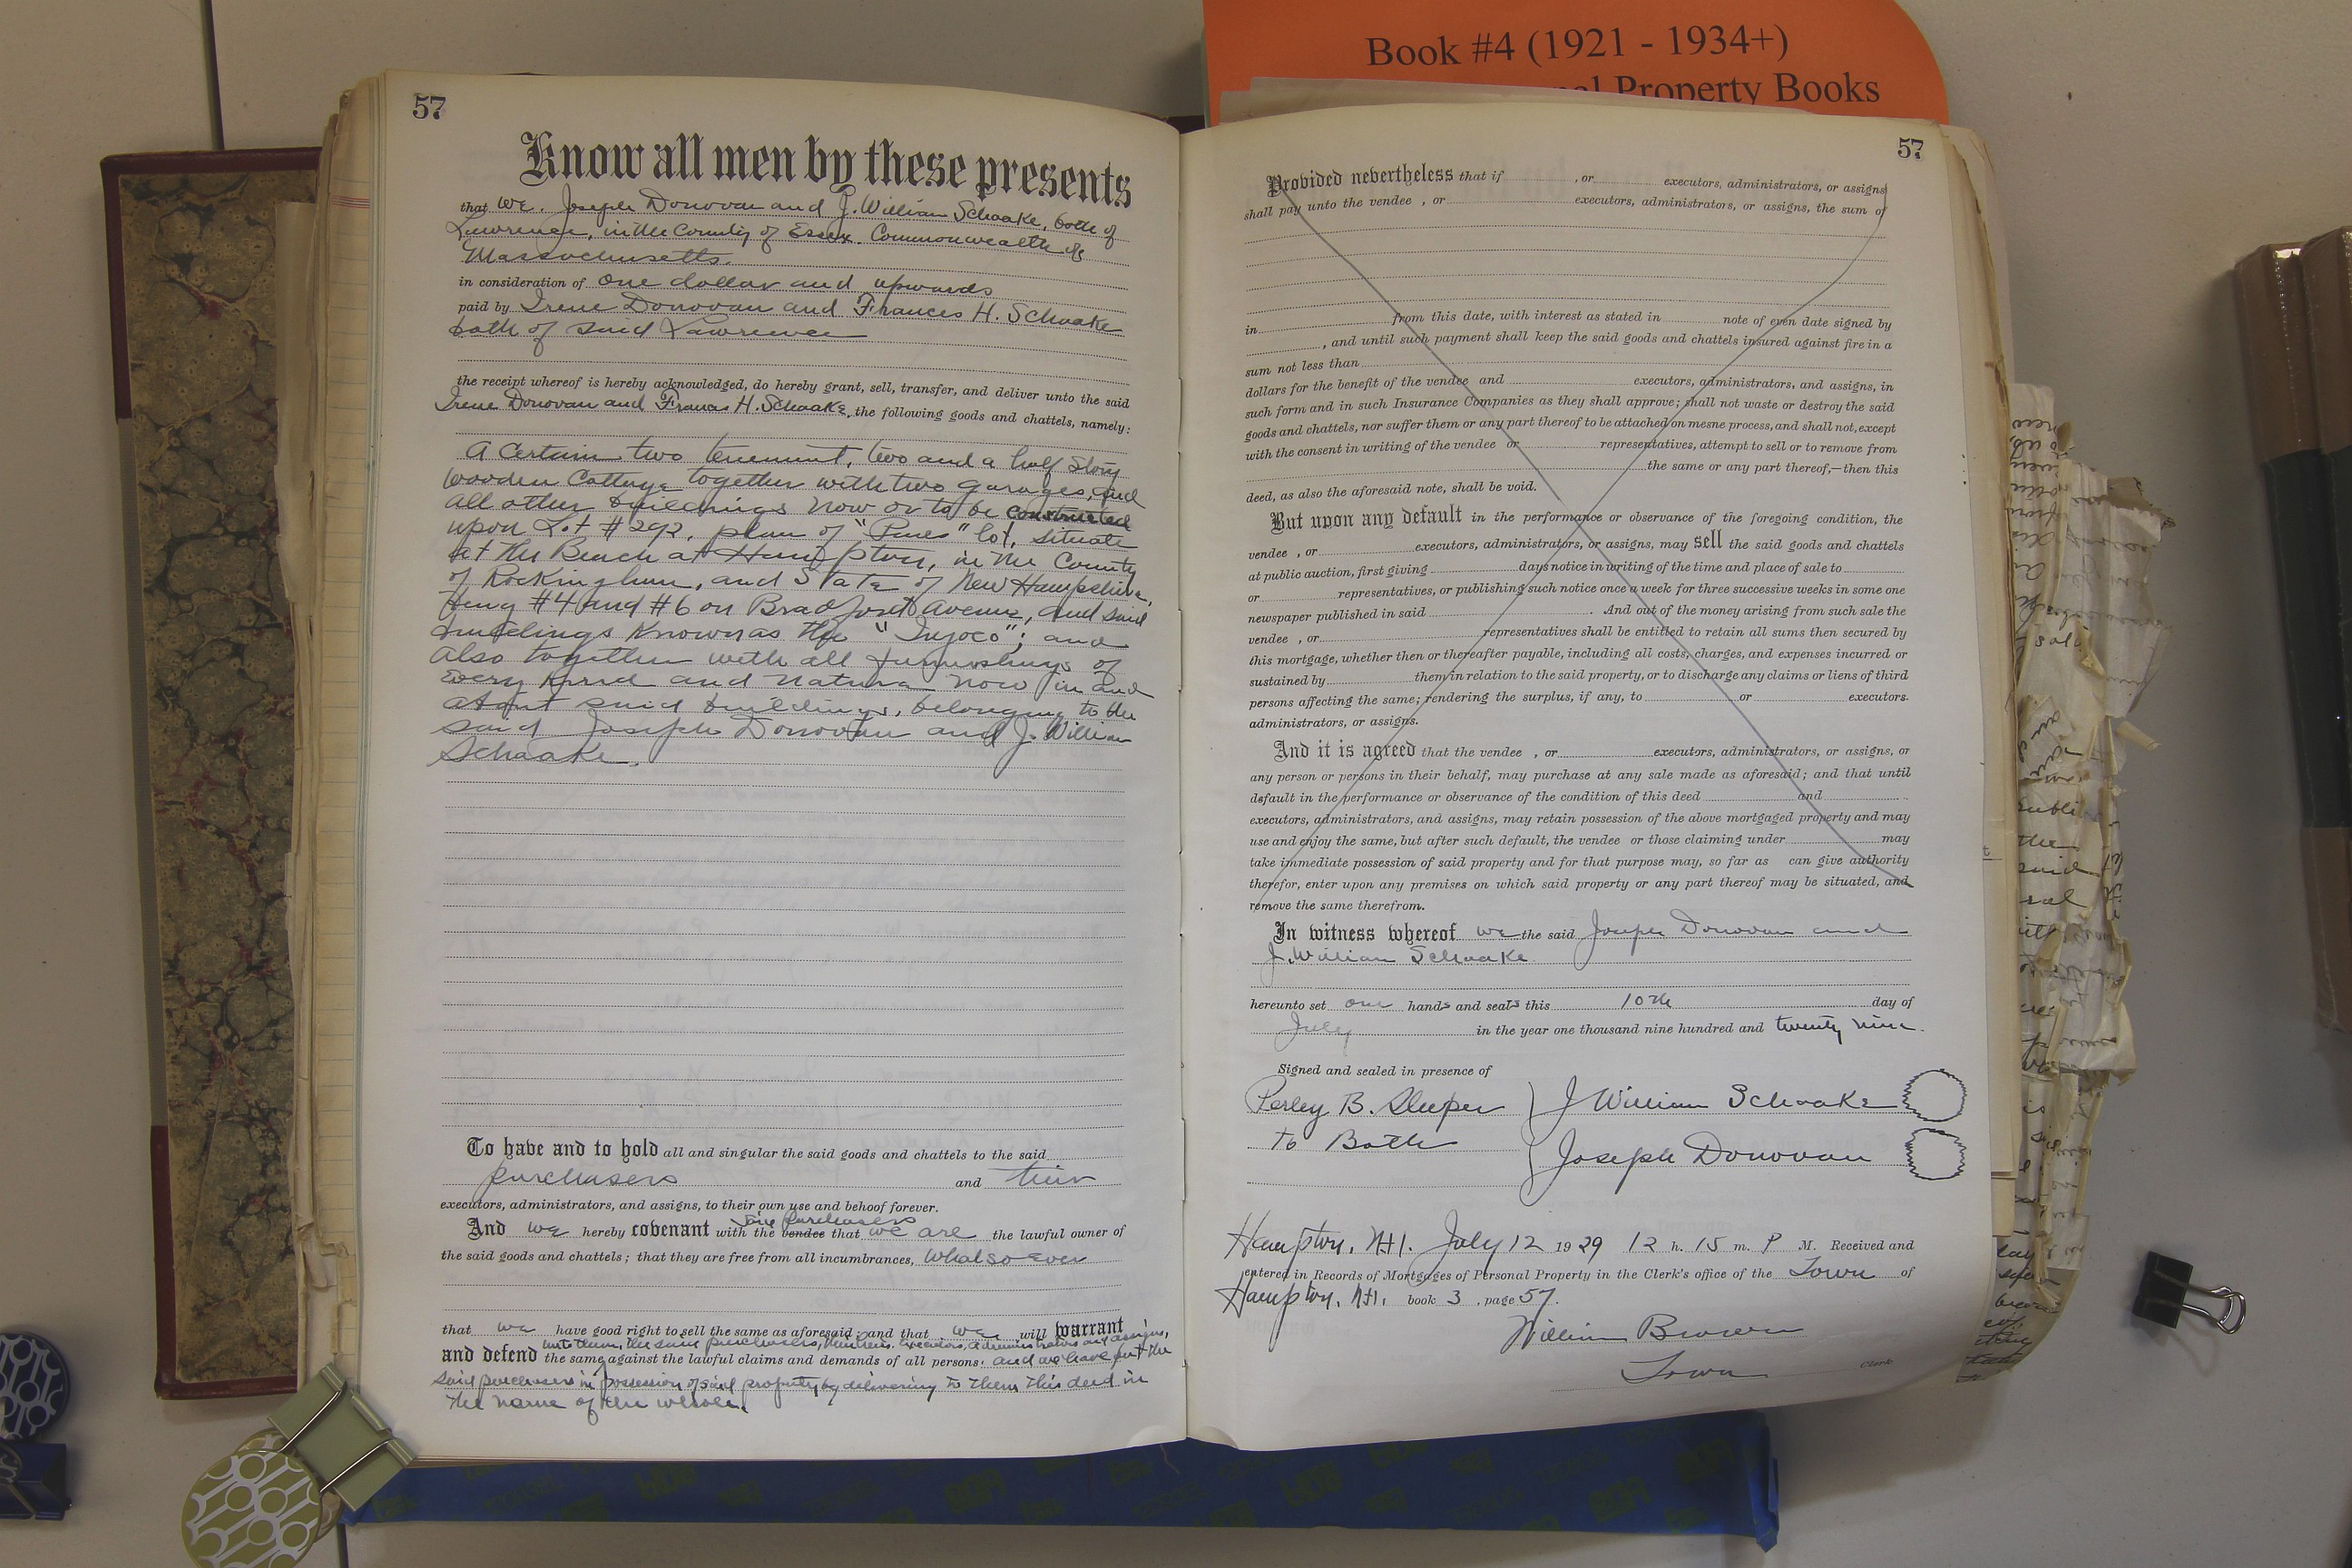 Book #4 (1921 - 1934+)
nal Property Books
57
Know all men by these presents
that we, Joseph Donovan and J. William Schaake, both of
Lawrence, in the County of Essex, Commonwealth of
Massachusetts.
in consideration of one dollar and upwards
paid by Irene Donovan and Frances H. Schaake
both of said Lawrence
the receipt whereof is hereby acknowledged, do hereby grant, sell, transfer, and deliver unto the said
Irene Donovan and Frances H. Schaake, the following goods and chattels, namely:
A certain two tenement, two and a half story
wooden Cottage together with two garages, and
all other buildings now or to be constructed
upon Lot #292, plan of "Pines" lot, situate
at the Beach at Hampton, in the County
of Rockingham, and State of New Hampshire,
being #4 and #6 on Bradford Avenue, and said
buildings known as the "Injoco"; and
also together with all furnishings of
every kind and nature now in and
about said buildings, belonging to the
said Joseph Donovan and J. William
Schaake.
To have and to hold all and singular the said goods and chattels to the said
purchasers and their
executors, administrators, and assigns, to their own use and behoof forever.
said purchasers
And we hereby covenant with the vendee that we are the lawful owner of
the said goods and chattels; that they are free from all incumbrances, whatsoever
that we have good right to sell the same as aforesaid; and that we will warrant
unto them, the said purchasers, their heirs, executors, administrators and assigns,
and defend the same against the lawful claims and demands of all persons. and we have put the
said purchasers in possession of said property by delivering to them this deed in
the name of the whole.
57
Provided nevertheless that if , or executors, administrators, or assigns
shall pay unto the vendee , or executors, administrators, or assigns, the sum of
in from this date, with interest as stated in note of even date signed by
, and until such payment shall keep the said goods and chattels insured against fire in a
sum not less than
dollars for the benefit of the vendee and executors, administrators, and assigns, in
such form and in such Insurance Companies as they shall approve; shall not waste or destroy the said
goods and chattels, nor suffer them or any part thereof to be attached on mesne process, and shall not, except
with the consent in writing of the vendee or representatives, attempt to sell or to remove from
the same or any part thereof,—then this
deed, as also the aforesaid note, shall be void.
But upon any default in the performance or observance of the foregoing condition, the
vendee , or executors, administrators, or assigns, may sell the said goods and chattels
at public auction, first giving days notice in writing of the time and place of sale to
or representatives, or publishing such notice once a week for three successive weeks in some one
newspaper published in said . And out of the money arising from such sale the
vendee , or representatives shall be entitled to retain all sums then secured by
this mortgage, whether then or thereafter payable, including all costs, charges, and expenses incurred or
sustained by them in relation to the said property, or to discharge any claims or liens of third
persons affecting the same; rendering the surplus, if any, to or executors.
administrators, or assigns.
And it is agreed that the vendee , or executors, administrators, or assigns, or
any person or persons in their behalf, may purchase at any sale made as aforesaid; and that until
default in the performance or observance of the condition of this deed and
executors, administrators, and assigns, may retain possession of the above mortgaged property and may
use and enjoy the same, but after such default, the vendee or those claiming under may
take immediate possession of said property and for that purpose may, so far as can give authority
therefor, enter upon any premises on which said property or any part thereof may be situated, and
remove the same therefrom.
In witness whereof we the said Joseph Donovan and
J. William Schaake
hereunto set our hands and seals this 10th day of
July in the year one thousand nine hundred and twenty nine.
Signed and sealed in presence of
Perley B. Sleeper J William Schaake
to Both Joseph Donovan
Hampton, N.H. July 12 1929 12 h. 15 m. P M. Received and
entered in Records of Mortgages of Personal Property in the Clerk's office of the Town of
Hampton, N.H. book 3 , page 57.
William Brown
Town Clerk